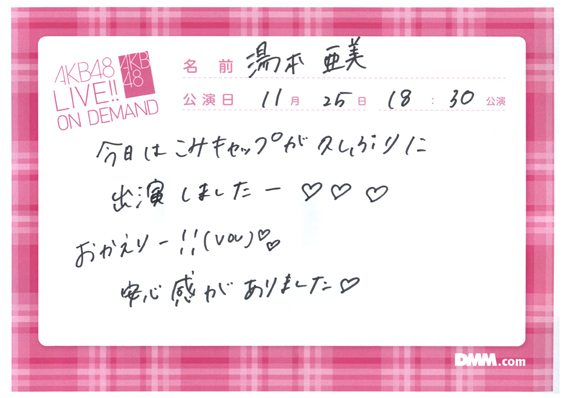 AKB48
LIVE!!
ON DEMAND
AKB
48
名 前 湯本 亜美
公演日 11月 25日 18 : 30 公演
今日はこみキャップが久しぶりに
出演しましたー♡♡♡
おかえりー!!(VoV)♡♡
安心感がありました♡
DMM.com